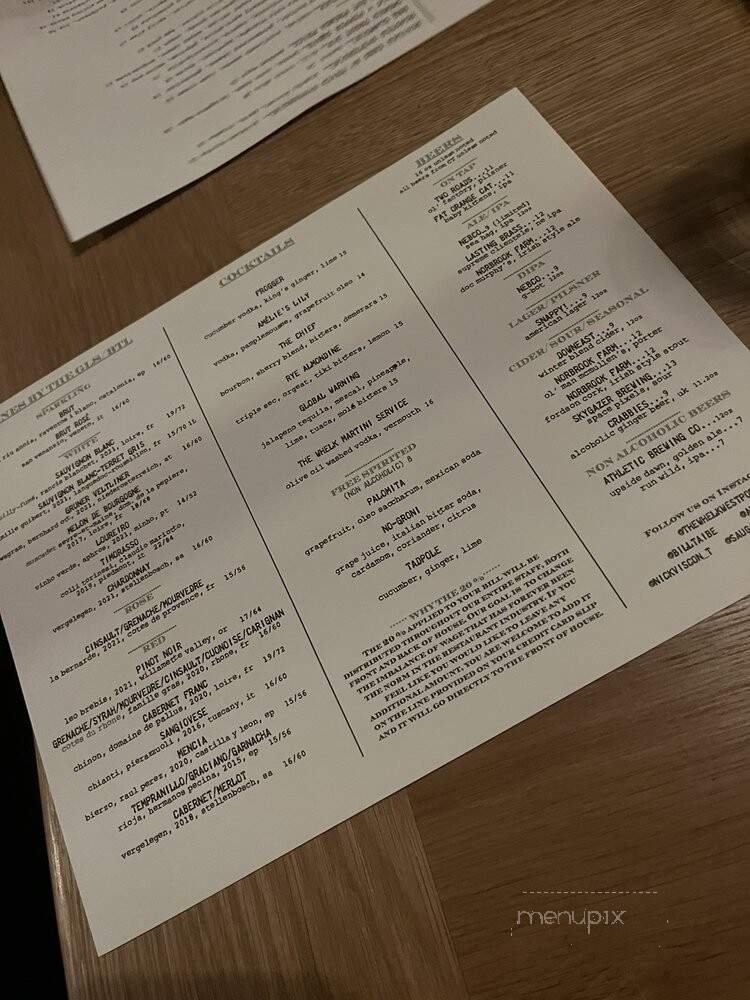 NES BY THE GLS/BTL
SPARKLING
BRUT
riu annia, raventos i blanc, catalonia, ep 16/60
BRUT ROSÉ
san venanzio, veneto, it 16/60
WHITE
SAUVIGNON BLANC
francis blanchet, 2021, loire, fr 19/72
SAUVIGNON BLANC-TERRET GRIS
guibert, 2021, languedoc-roussillon, fr 15/70 lt
GRUNER VELTLINER
bernhard ott, 2021, niederosterreich, at 16/60
MELON DE BOURGOGNE
muscadet sevre-et-maine, dom. de la pepiere,
2017, loire, fr 18/68
LOUREIRO
vinho verde, aphros, 2021, minho, pt 14/52
TIMORASSO
colli tortonesi, claudio mariotto,
2019, piedmont, it 22/84
CHARDONNAY
vergelegen, 2021, stellenbosch, sa 16/60
ROSÉ
CINSAULT/GRENACHE/MOURVEDRE
la bernarde, 2021, cotes de provence, fr 15/56
RED
PINOT NOIR
leo brebis, 2021, willamette valley, or 17/64
GRENACHE/SYRAH/MOURVEDRE/CINSAULT/COUNOISE/CARIGNAN
cotes du rhone, famille gras, 2020, rhone, fr 16/60
CABERNET FRANC
chinon, domaine de pallus, 2020, loire, fr 19/72
SANGIOVESE
chianti, pierazzuoli, 2016, tuscany, it 16/60
MENCIA
bierzo, raul perez, 2020, castilla y leon, ep 15/56
TEMPRANILLO/GRACIANO/GARNACHA
rioja, hermanos pecina, 2015, ep 15/56
CABERNET/MERLOT
vergelegen, 2018, stellenbosch, sa 16/60
COCKTAILS
FROGGER
cucumber vodka, king's ginger, lime 15
AMÉLIE'S LILY
vodka, pamplemousse, grapefruit oleo 14
THE CHIEF
bourbon, sherry blend, bitters, demerara 15
RYE ALMONDINE
triple sec, orgeat, tiki bitters, lemon 15
GLOBAL WARNING
jalapeno tequila, mezcal, pineapple,
lime, tuaca, molé bitters 15
THE WHELK MARTINI SERVICE
olive oil washed vodka, vermouth 16
FREE SPIRITED
(NON ALCOHOLIC) 8
PALOMITA
grapefruit, oleo saccharum, mexican soda
NO-GRONI
grape juice, italian bitter soda,
cardamom, coriander, citrus
TADPOLE
cucumber, ginger, lime
------ WHY THE 20%------
THE 20% APPLIED TO YOUR BILL WILL BE
DISTRIBUTED THROUGHOUT OUR ENTIRE STAFF, BOTH
FRONT AND BACK OF HOUSE. OUR GOAL IS TO CHANGE
THE IMBALANCE OF WAGE THAT HAS FOREVER BEEN
THE NORM IN THE RESTAURANT INDUSTRY. IF YOU
FEEL LIKE YOU WOULD LIKE TO LEAVE ANY
ADDITIONAL AMOUNT, YOU ARE WELCOME TO ADD IT
ON THE LINE PROVIDED ON YOUR CREDIT CARD SLIP
AND IT WILL GO DIRECTLY TO THE FRONT OF HOUSE.
BEERS
16 oz unless noted
all beers from CT unless noted
ON TAP
TWO ROADS...11
ol' factory, pilsner
FAT ORANGE CAT...11
baby kittens, ipa
ALE/IPA
NEBCO…9 (limited)
sea hag, ipa 12oz
LASTING BRASS...12
supreme clientele, ne ipa
NORBROOK FARM...12
doc murphy's, irish style ale
DIPA
NEBCO...9
g-bot 12oz
LAGER/PILSNER
SNAPPY!...9
american lager 12oz
CIDER/SOUR/SEASONAL
DOWNEAST...9
winter blend cider, 12oz
NORBROOK FARM...12
ol' man mcmullen's, porter
NORBROOK FARM...12
fordson cork, irish style stout
SKYGAZER BREWING...13
space pixels, sour
CRABBIES...9
alcoholic ginger beer, uk 11.2oz
NON ALCOHOLIC BEERS
ATHLETIC BREWING CO...12oz
upside dawn, golden ale...7
run wild, ipa...7
FOLLOW US ON INSTA
@THEWHELKWESTPO
@BILLTAIBE
@SAUG
@NICKVISCON_T
menupix